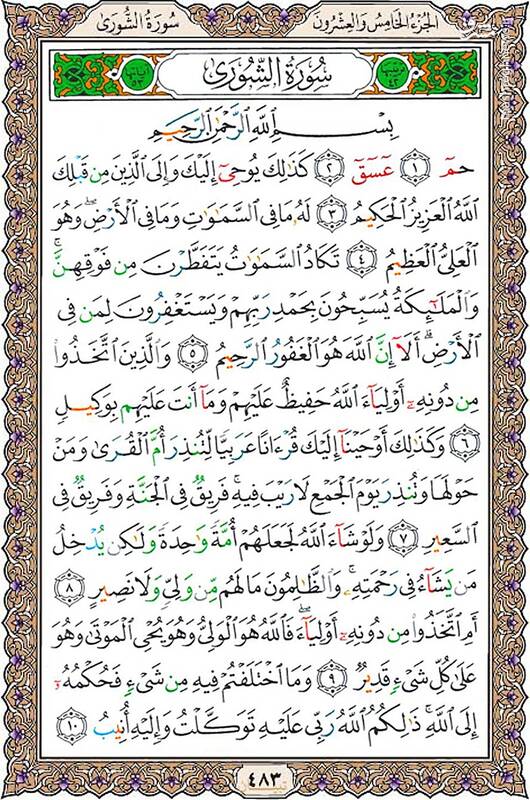 الجزء الخامس والعشرون
سورة الشورى
آياتها ٥٣
سُورَةُ الشُّورَىٰ
بِسْمِ ٱللَّهِ ٱلرَّحْمَٰنِ ٱلرَّحِيمِ
حمٓ ١ عٓسٓقٓ ٢ كَذَٰلِكَ يُوحِىٓ إِلَيْكَ وَإِلَى ٱلَّذِينَ مِن قَبْلِكَ
ٱللَّهُ ٱلْعَزِيزُ ٱلْحَكِيمُ ٣ لَهُۥ مَا فِى ٱلسَّمَٰوَٰتِ وَمَا فِى ٱلْأَرْضِۖ وَهُوَ
ٱلْعَلِىُّ ٱلْعَظِيمُ ٤ تَكَادُ ٱلسَّمَٰوَٰتُ يَتَفَطَّرْنَ مِن فَوْقِهِنَّۚ
وَٱلْمَلَٰٓئِكَةُ يُسَبِّحُونَ بِحَمْدِ رَبِّهِمْ وَيَسْتَغْفِرُونَ لِمَن فِى
ٱلْأَرْضِۗ أَلَآ إِنَّ ٱللَّهَ هُوَ ٱلْغَفُورُ ٱلرَّحِيمُ ٥ وَٱلَّذِينَ ٱتَّخَذُوا۟
مِن دُونِهِۦٓ أَوْلِيَآءَ ٱللَّهُ حَفِيظٌ عَلَيْهِمْ وَمَآ أَنتَ عَلَيْهِم بِوَكِيلٍ
٦ وَكَذَٰلِكَ أَوْحَيْنَآ إِلَيْكَ قُرْءَانًا عَرَبِيًّا لِّتُنذِرَ أُمَّ ٱلْقُرَىٰ وَمَنْ
حَوْلَهَا وَتُنذِرَ يَوْمَ ٱلْجَمْعِ لَا رَيْبَ فِيهِۚ فَرِيقٌ فِى ٱلْجَنَّةِ وَفَرِيقٌ فِى
ٱلسَّعِيرِ ٧ وَلَوْ شَآءَ ٱللَّهُ لَجَعَلَهُمْ أُمَّةً وَٰحِدَةً وَلَٰكِن يُدْخِلُ
مَن يَشَآءُ فِى رَحْمَتِهِۦۚ وَٱلظَّٰلِمُونَ مَا لَهُم مِّن وَلِىٍّ وَلَا نَصِيرٍ ٨
أَمِ ٱتَّخَذُوا۟ مِن دُونِهِۦٓ أَوْلِيَآءَۖ فَٱللَّهُ هُوَ ٱلْوَلِىُّ وَهُوَ يُحْىِ ٱلْمَوْتَىٰ وَهُوَ
عَلَىٰ كُلِّ شَىْءٍ قَدِيرٌ ٩ وَمَا ٱخْتَلَفْتُمْ فِيهِ مِن شَىْءٍ فَحُكْمُهُۥٓ
إِلَى ٱللَّهِۚ ذَٰلِكُمُ ٱللَّهُ رَبِّى عَلَيْهِ تَوَكَّلْتُ وَإِلَيْهِ أُنِيبُ ١٠
٤٨٣